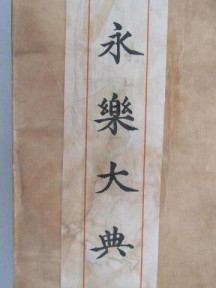 永樂大典